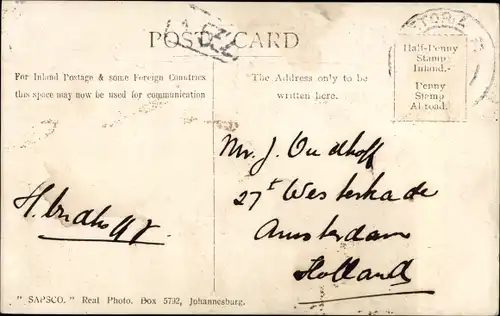 POST CARD
TORIA
For Inland Postage & some Foreign Countries
this space may now be used for communication
The Address only to be
written here.
Half-Penny
Stamp
Inland.-
Penny
Stamp
Abroad.
Mr. J. Oudhoff
27 Westerkade
Amsterdam
Holland
H. Oudhoff
" SAPSCO. " Real Photo. Box 5792, Johannesburg.